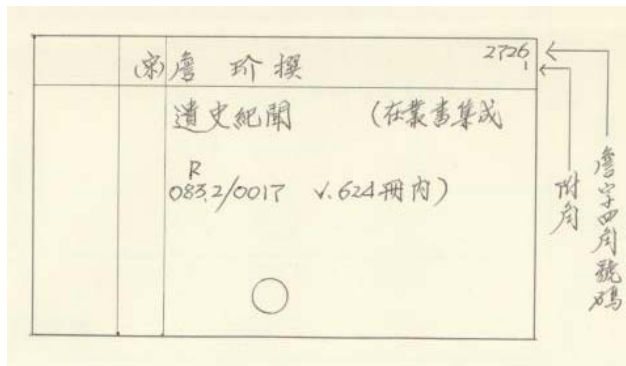 (宋)詹 玠撰 2726
1
遺史紀聞 (在叢書集成
R
083.2/0017 v.624冊內)
附角
詹字四角號碼